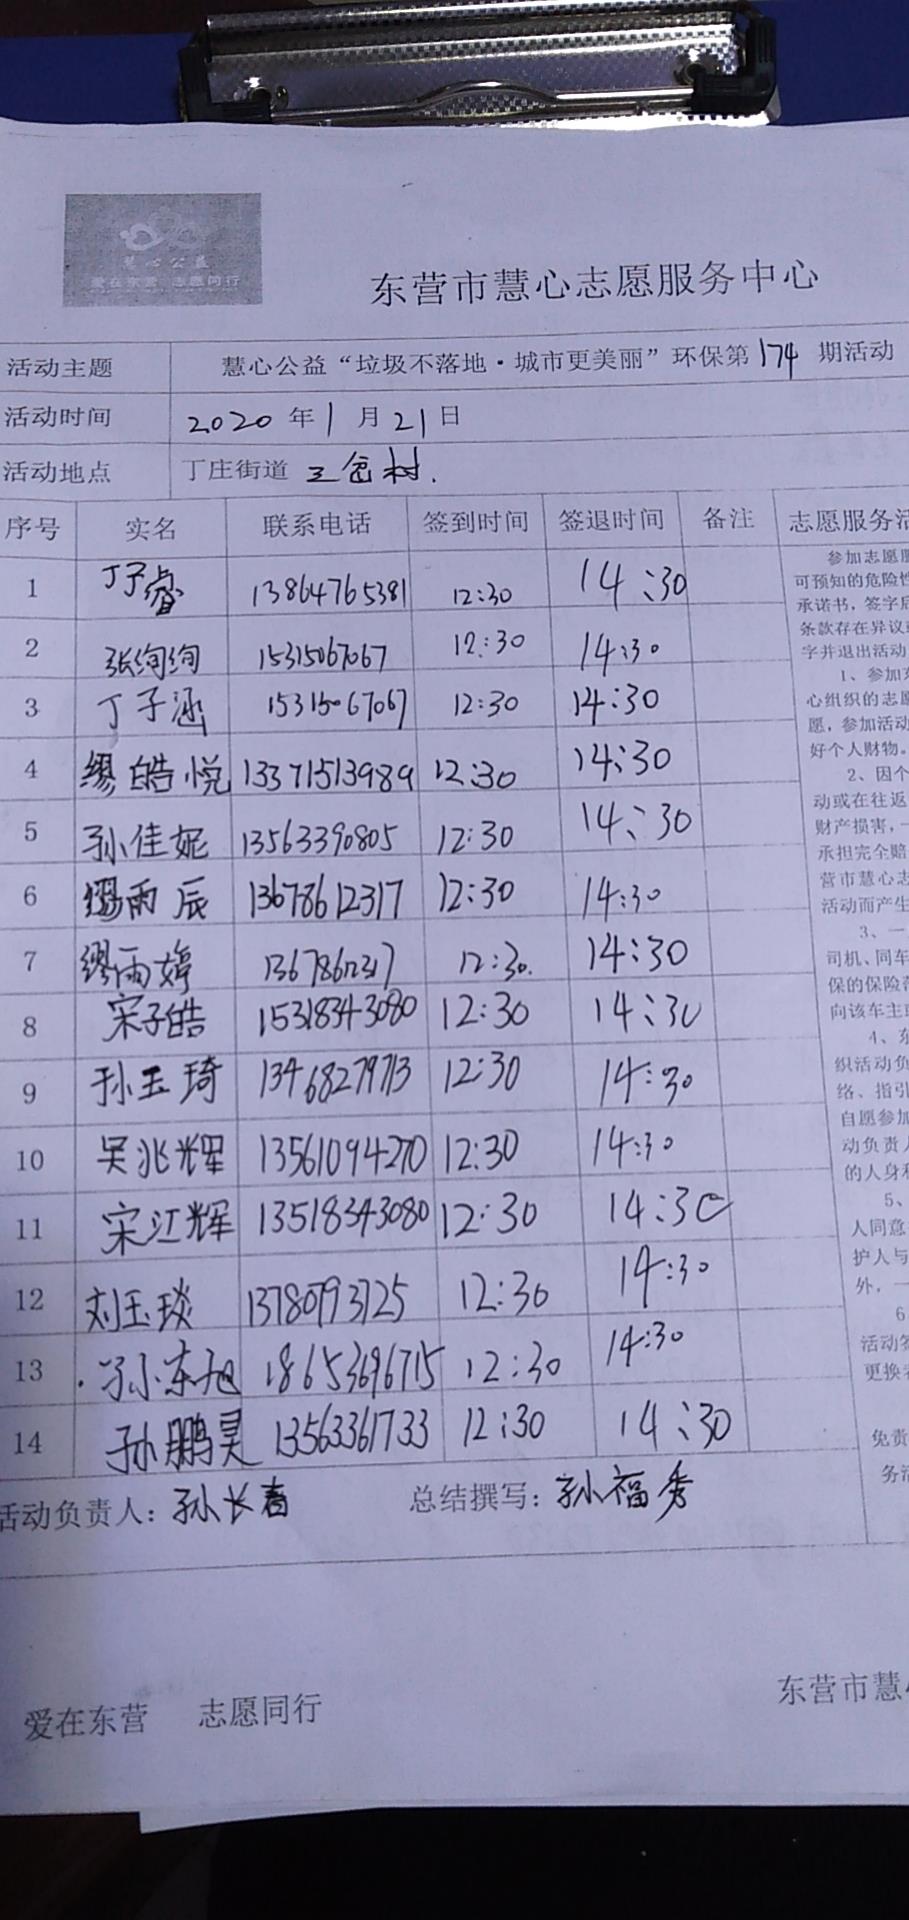 慧心公益
爱在东营 志愿同行
东营市慧心志愿服务中心
活动主题 慧心公益“垃圾不落地·城市更美丽”环保第174期活动
活动时间 2020年1月21日
活动地点 丁庄街道 三岔村.
序号 实名 联系电话 签到时间 签退时间 备注 志愿服务活
1 丁子睿 13864765381 12:30 14:30
2 张绚绚 15315067067 12:30 14:30
3 丁子涵 15315067067 12:30 14:30
4 缪皓悦 13371513989 12:30 14:30
5 孙佳妮 13563390805 12:30 14:30
6 缪雨辰 13678612317 12:30 14:30
7 缪雨婷 13678612317 12:30. 14:30
8 宋子皓 15318343080 12:30 14:30
9 孙玉琦 13468279713 12:30 14:30
10 吴兆辉 13561094270 12:30 14:30
11 宋江辉 13518343080 12:30 14:30
12 刘玉琰 13780793725 12:30 14:30
13 孙东旭 18653696715 12:30 14:30
14 孙鹏昊 13563361733 12:30 14:30
参加志愿服
可预知的危险性
承诺书，签字后
条款存在异议或
字并退出活动
1、参加
心组织的志愿
愿，参加活动
好个人财物。
2、因个
动或在往返
财产损害，一
承担完全赔
营市慧心志
活动而产生
3、一
司机、同车
保的保险范
向该车主或
4、东
织活动负
络、指引
自愿参加
动负责人
的人身和
5、
人同意
护人与
外，一
6
活动签
更换
免责
务活
活动负责人：孙长春 总结撰写：孙福秀
爱在东营 志愿同行
东营市慧心